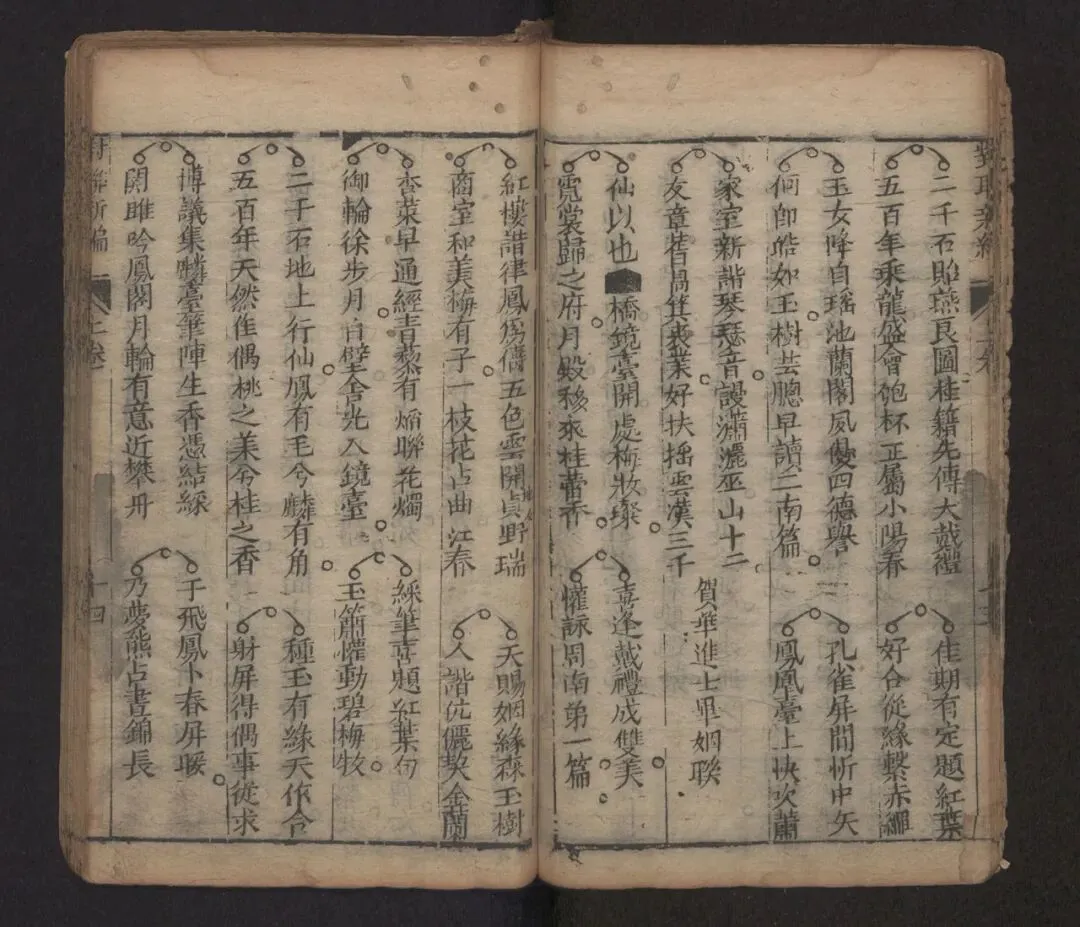 二千石貽瑤燕良圖桂籍先傳大戴禮
五百年乘龍盛會匏杯正屬小陽春
佳期有定題紅葉
好合從緣繫赤繩
玉女降自瑤池蘭閣夙嫻四德譽
何郎皓如玉樹芸牕早讀二南篇
孔雀屏間忻中矢
鳳凰臺上快吹簫
家室新諧琴瑟音謾瀟灑巫山十二
友章昔咼箕裘業好扶搖雲漢三千
賀華進士畢姻聯
仙以也 橋鏡臺開處梅妝璨
霓裳歸之府月殿移來桂蕾香
喜逢戴禮成雙美
懽詠周南第一篇
紅樓諧律鳳房儔五色雲開貞野瑞
商室和美梅有子一枝花占曲江春
天賜姻緣森玉樹
人諧伉儷契金蘭
查菜早通經青藜有熖聯花燭
御輪徐步月白璧含光入鏡臺
綵筆喜題紅葉句
玉簫懽動碧梅牧
二千石地上行仙鳳有毛兮麟有角
五百年天然作偶桃之美兮桂之香
種玉有緣天作合
射屏得偶事從求
博議集麟臺筆陣生香憑結綵
關雎吟鳳閣月輪有意近攀丹
于飛鳳卜春屏暖
乃夢熊占晝錦長
對聯新編
二卷
十四